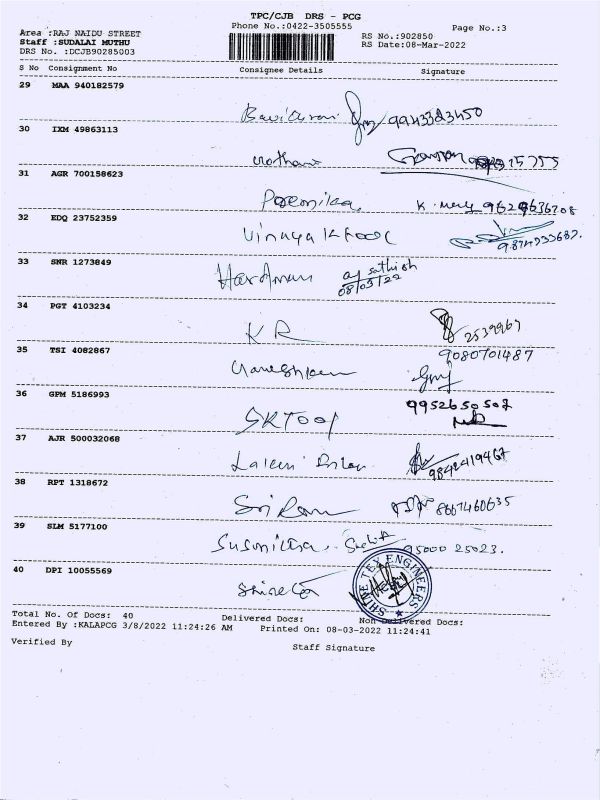 TPC/CJB DRS - PCG
Phone No.:0422-3505555
Page No.:3
Area :RAJ NAIDU STREET
Staff :SUDALAI MUTHU
DRS No. :DCJB90285003
RS No.:902850
RS Date:08-Mar-2022
S No Consignment No Consignee Details Signature
29 MAA 940182579
9943323450
30 IXM 49863113
31 AGR 700158623
Premika
32 EDQ 23752359
Vinayak Tool
33 SNR 1273849
Hardman sathish
08/03/22
34 PGT 4103234
KR 2539967
35 TSI 4082867
9080701487
36 GPM 5186993
SKTool 9952650502
37 AJR 500032068
9842419467
38 RPT 1318672
Sri Ram 8667460635
39 SLM 5177100
Susmitha. 95000 25023.
40 DPI 10055569
SHINE TEX ENGINEERS
Total No. Of Docs: 40 Delivered Docs: Non Delivered Docs:
Entered By :KALAPCG 3/8/2022 11:24:26 AM Printed On: 08-03-2022 11:24:41
Verified By Staff Signature